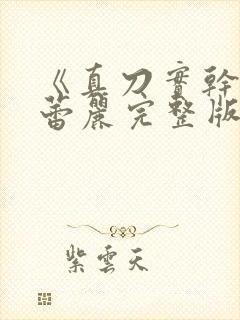 《真刀實幹
蕾麗完整版
紫雲天